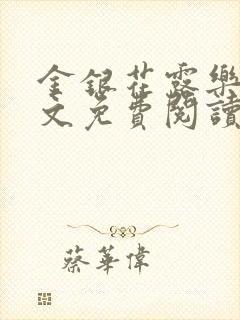 金銀花露樂
文免費閱讀
蔡華偉